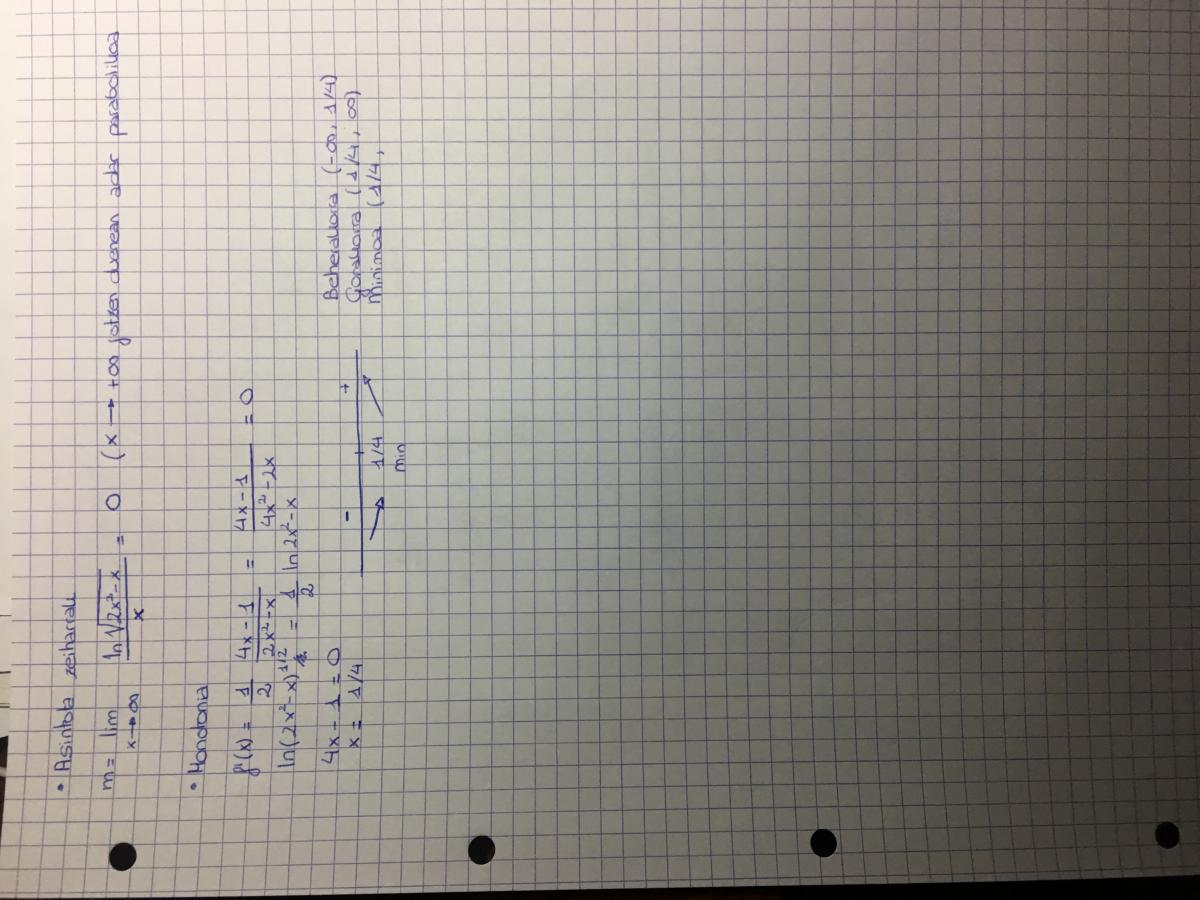 • Asintota zeiharrak
m = lim x→∞ ln√(2x²-x) / x = 0 (x → +∞ jotzen duenean adar parabolikoa
• Monotonia
f'(x) = 1/2 (4x-1)/(2x²-x) = (4x-1)/(4x²-2x) = 0
ln(2x²-x)^1/2 = 1/2 ln 2x²-x
4x - 1 = 0
x = 1/4
- +
1/4
min
Beherakorra (-∞, 1/4)
Gorakorra (1/4, ∞)
Minimoa (1/4,